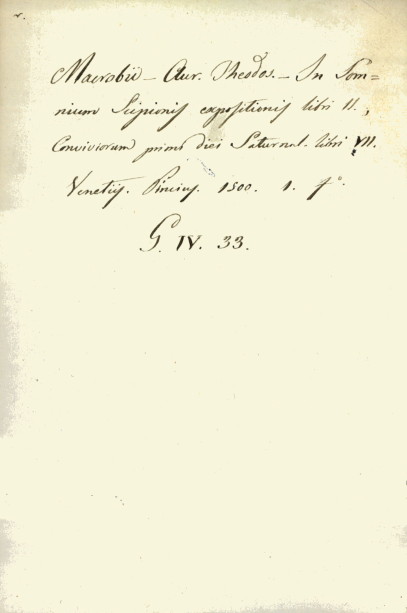 Macrobii – Aur. Theodos. – In Som=
nium Scipionis expositionis libri II.,
Conviviorum primi diei Saturnal. libri VII.
Venetiis. Pincius. 1500. 1. fº.
G. IV. 33.